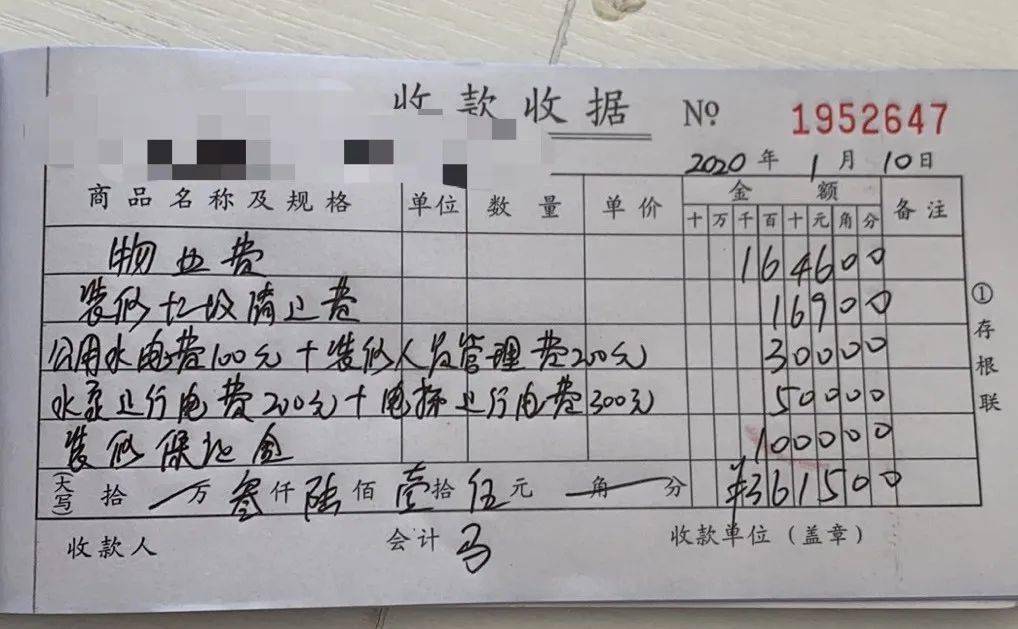 收款收据 № 1952647
2020年1月10日
商品名称及规格 单位 数量 单价 金额 备注
十万千百十元角分
物业费 164600
装修垃圾清运费 16900
公用水电费100元+装修人员管理费200元 30000
水泵运行电费200元+电梯运行电费300元 50000
装修保证金 100000
(大写) 拾 万叁仟陆佰壹拾伍元 角 分 ¥361500
①存根联
收款人 会计 马 收款单位(盖章)